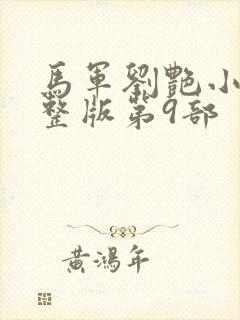 馬軍劉艷小
整版第9部
黃鴻年